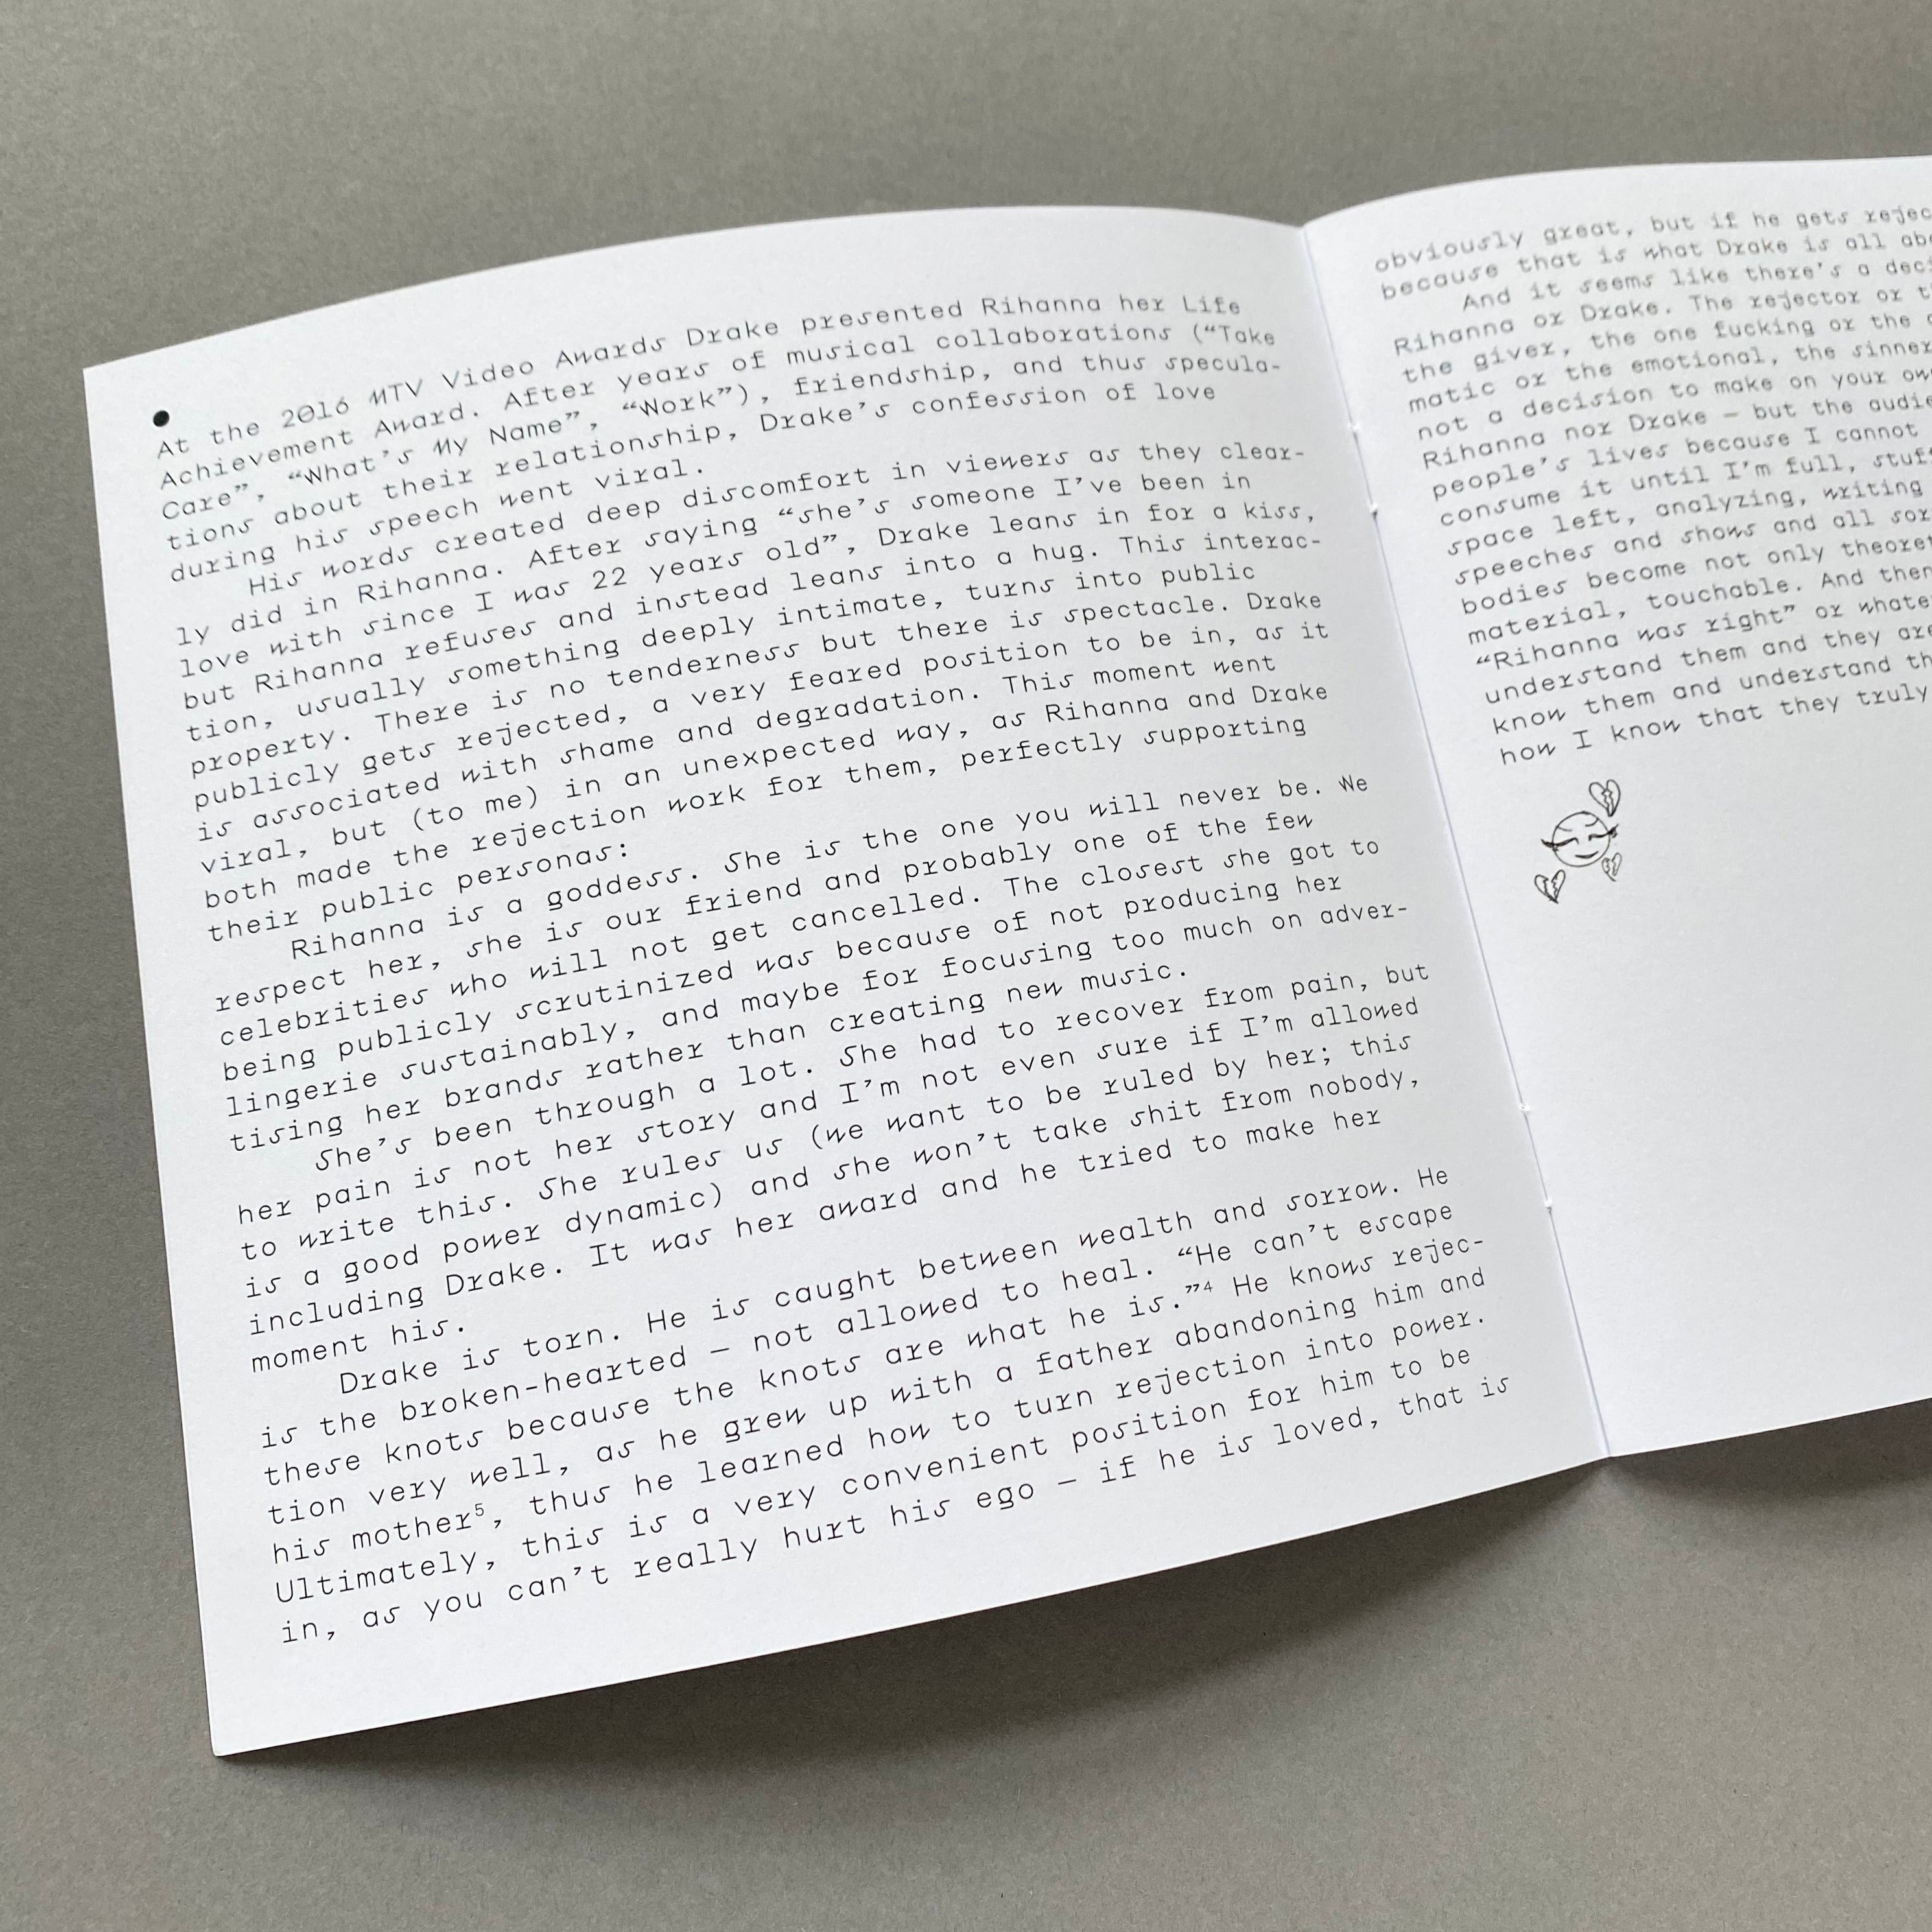 At the 2016 MTV Video Awards Drake presented Rihanna her Life
Achievement Award. After years of musical collaborations (“Take
Care”, “What’s My Name”, “Work”), friendship, and thus specula-
tions about their relationship, Drake’s confession of love
during his speech went viral.
His words created deep discomfort in viewers as they clear-
ly did in Rihanna. After saying “she’s someone I’ve been in
love with since I was 22 years old”, Drake leans in for a kiss,
but Rihanna refuses and instead leans into a hug. This interac-
tion, usually something deeply intimate, turns into public
property. There is no tenderness but there is spectacle. Drake
publicly gets rejected, a very feared position to be in, as it
is associated with shame and degradation. This moment went
viral, but (to me) in an unexpected way, as Rihanna and Drake
both made the rejection work for them, perfectly supporting
their public personas:
Rihanna is a goddess. She is the one you will never be. We
respect her, she is our friend and probably one of the few
celebrities who will not get cancelled. The closest she got to
being publicly scrutinized was because of not producing her
lingerie sustainably, and maybe for focusing too much on adver-
tising her brands rather than creating new music.
She’s been through a lot. She had to recover from pain, but
her pain is not her story and I’m not even sure if I’m allowed
to write this. She rules us (we want to be ruled by her; this
is a good power dynamic) and she won’t take shit from nobody,
including Drake. It was her award and he tried to make her
moment his.
Drake is torn. He is caught between wealth and sorrow. He
is the broken-hearted — not allowed to heal. “He can’t escape
these knots because the knots are what he is.”⁴ He knows rejec-
tion very well, as he grew up with a father abandoning him and
his mother⁵, thus he learned how to turn rejection into power.
Ultimately, this is a very convenient position for him to be
in, as you can’t really hurt his ego — if he is loved, that is
obviously great, but if he gets
because that is what Drake is all
And it seems like there’s a
Rihanna or Drake. The rejector or
the giver, the one fucking or the
matic or the emotional, the
not a decision to make on your
Rihanna nor Drake — but the
people’s lives because I cannot
consume it until I’m full,
space left, analyzing, writing
speeches and shows and all
bodies become not only
material, touchable. And
“Rihanna was right” or
understand them and they
know them and understand
how I know that they truly